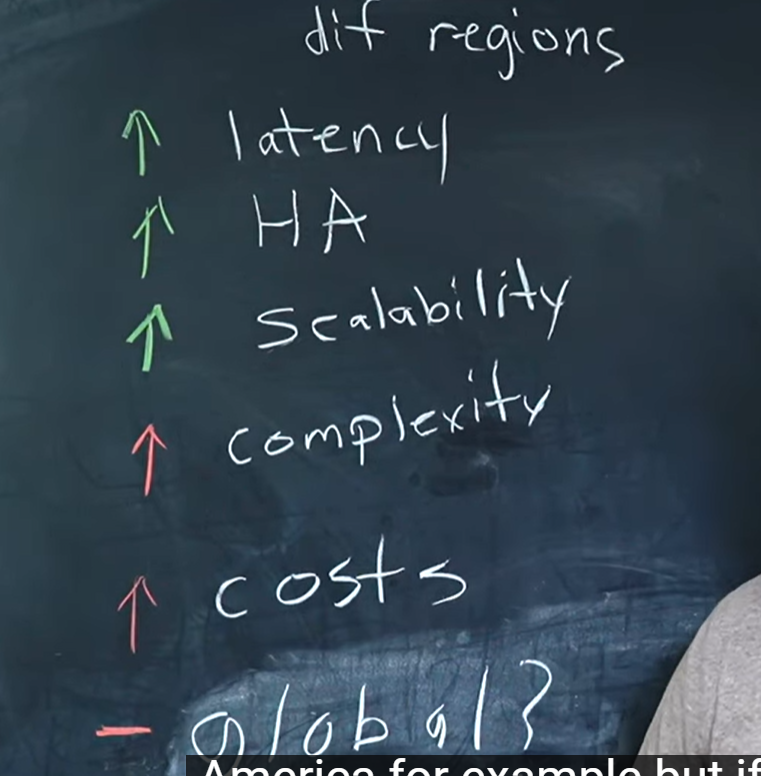 dif regions
↑ latency
↑ HA
↑ scalability
↑ complexity
↑ costs
- global?
America for example but if